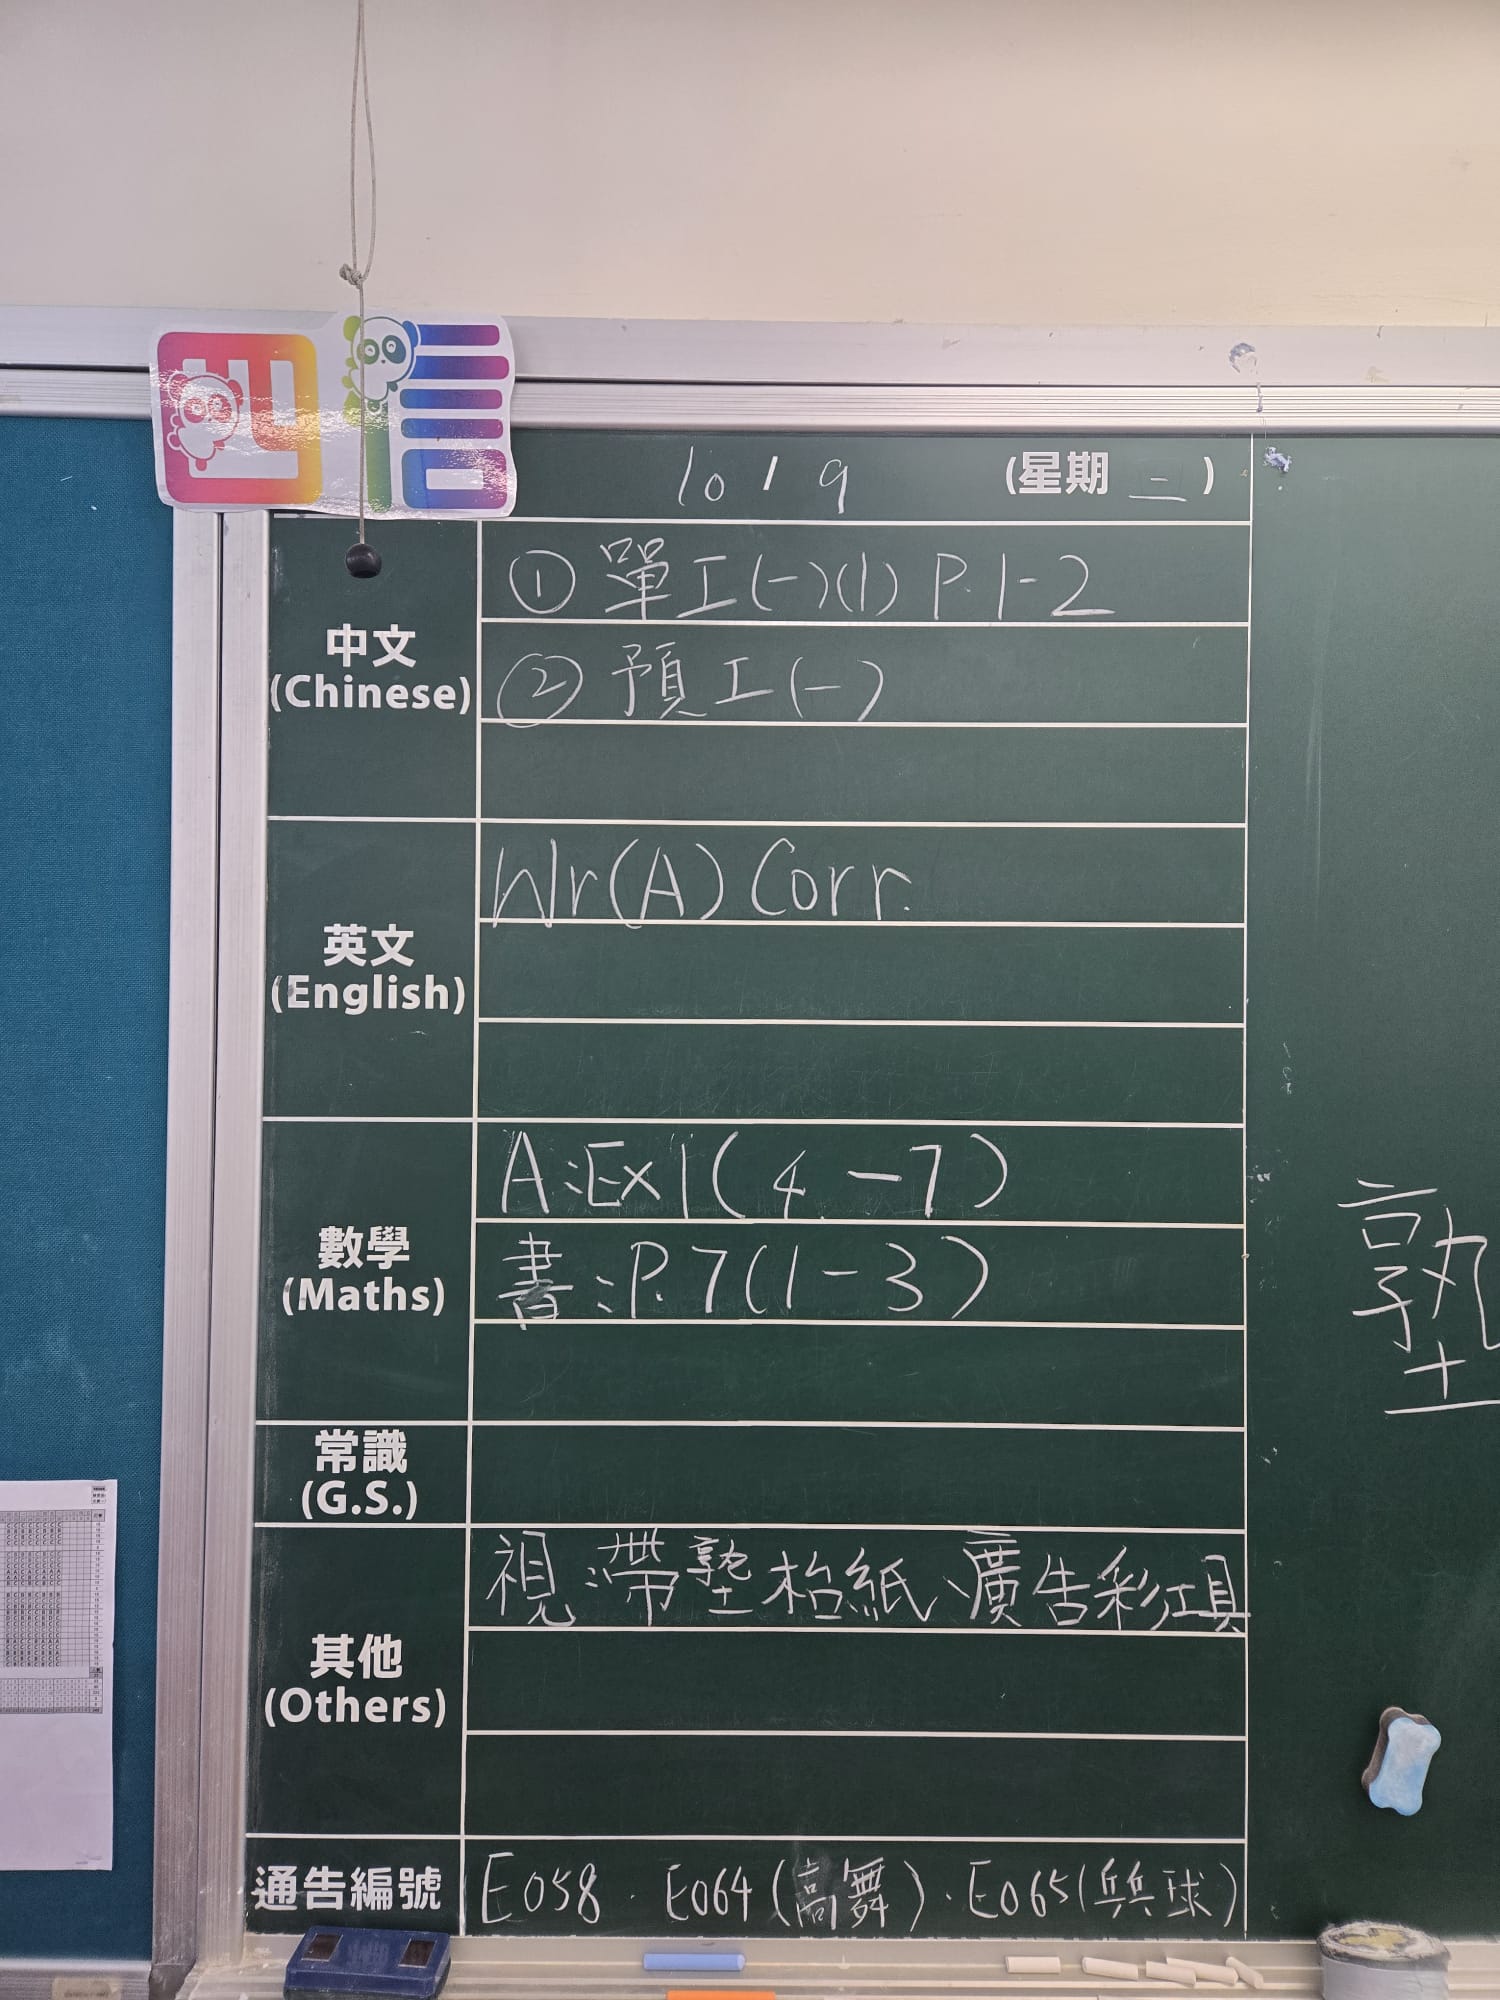 四信
10/9 (星期二)
中文
(Chinese)
① 單工(一)(1) P.1-2
② 預工(一)
英文
(English)
Wr(A) Corr.
數學
(Maths)
A:Ex1(4-7)
書:P.7(1-3)
塾
常識
(G.S.)
其他
(Others)
視:帶塾枱紙、廣告彩工具
通告編號
E058. E064(高舞). E065(乒乓球)